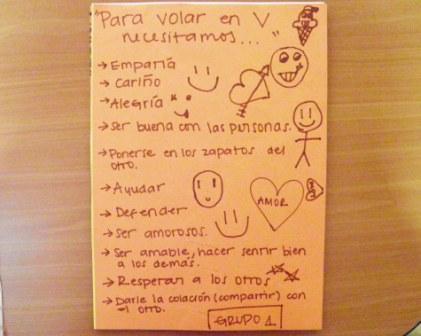 "Para volar en V
necesitamos..."
→ Empatía
→ Cariño
→ Alegría
→ Ser buena con las personas.
→ Ponerse en los zapatos del
otro.
→ Ayudar
AMOR
→ Defender
→ Ser amorosos.
→ Ser amable, hacer sentir bien
a los demás.
→ Respetar a los otros
→ Darle la colación (compartir) con
el otro.
GRUPO 1